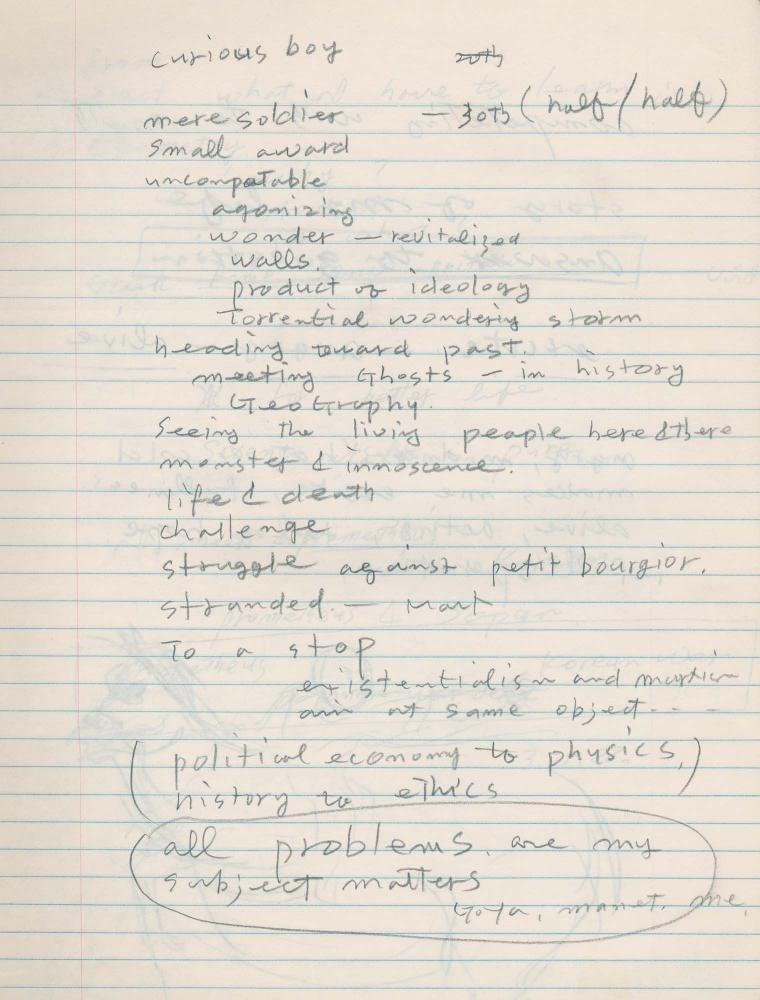 curious boy ~~20th~~
mere soldier — 30th (half/half)
small award
uncompatable
agonizing
wonder — revitalized
walls.
product of ideology
Torrential wondering storm
heading toward past.
meeting Ghosts — in history
GeoGraphy.
Seeing the living people here & there
monster & innoscence.
life & death
challenge
struggle against petit bourgior.
stranded. —
To a stop
existentialism and
aim at same object - - -
(political economy to physics,)
history to ethics
all problems. are my
subject matters
Goya, manet. me.